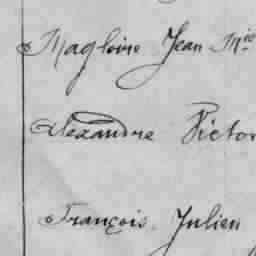 Magloire Jean Mie
Alexandre Victor
François Julien